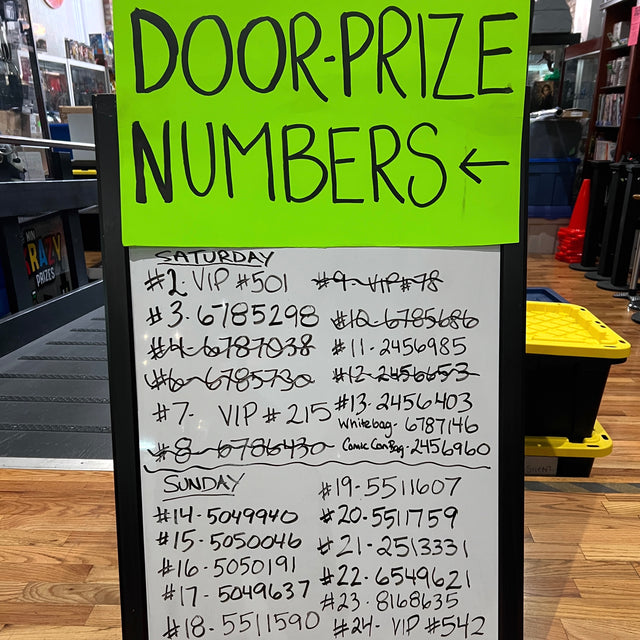 DOOR-PRIZE
NUMBERS ←
SATURDAY
#2- VIP #501
#3-6785298
#4-6787038
#6-6785730
#7- VIP #215
#8-6786430
#9-VIP#78
#10-6785686
#11-2456985
#12-2456653
#13-2456403
White bag- 6787146
Comic Con Bag-2456960
SUNDAY
#14-5049940
#15-5050046
#16-5050191
#17-5049637
#18-5511590
#19-5511607
#20-5511759
#21-2513331
#22-6549621
#23-8168635
#24- VIP #542
MINI
CRAZY
PRIZES
SILENT